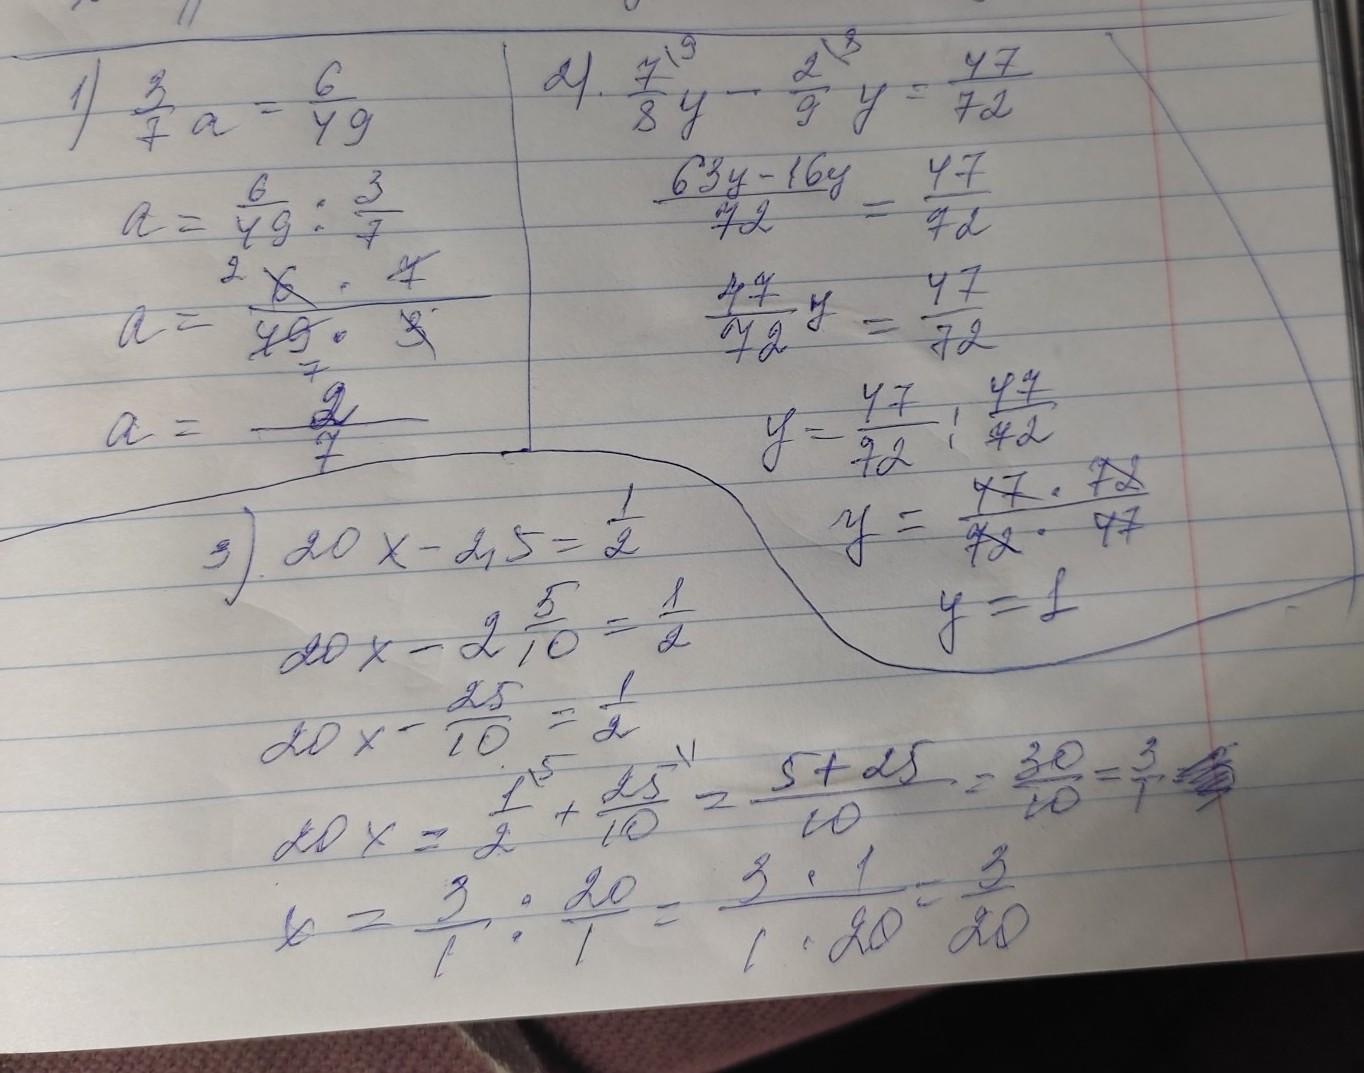 1) 3/7 a = 6/49
a = 6/49 : 3/7
2
a = 6 · 7 / 49 · 3
7
a = 2/7
2). 7\9/8 y - 2\8/9 y = 47/72
63y - 16y / 72 = 47/72
47/72 y = 47/72
y = 47/72 : 47/72
y = 47 · 72 / 72 · 47
y = 1
3). 20x - 2,5 = 1/2
20x - 2 5/10 = 1/2
20x - 25/10 = 1/2
20x = 1\5/2 + 25\1/10 = 5+25/10 = 30/10 = 3/1
x = 3/1 : 20/1 = 3 · 1 / 1 · 20 = 3/20